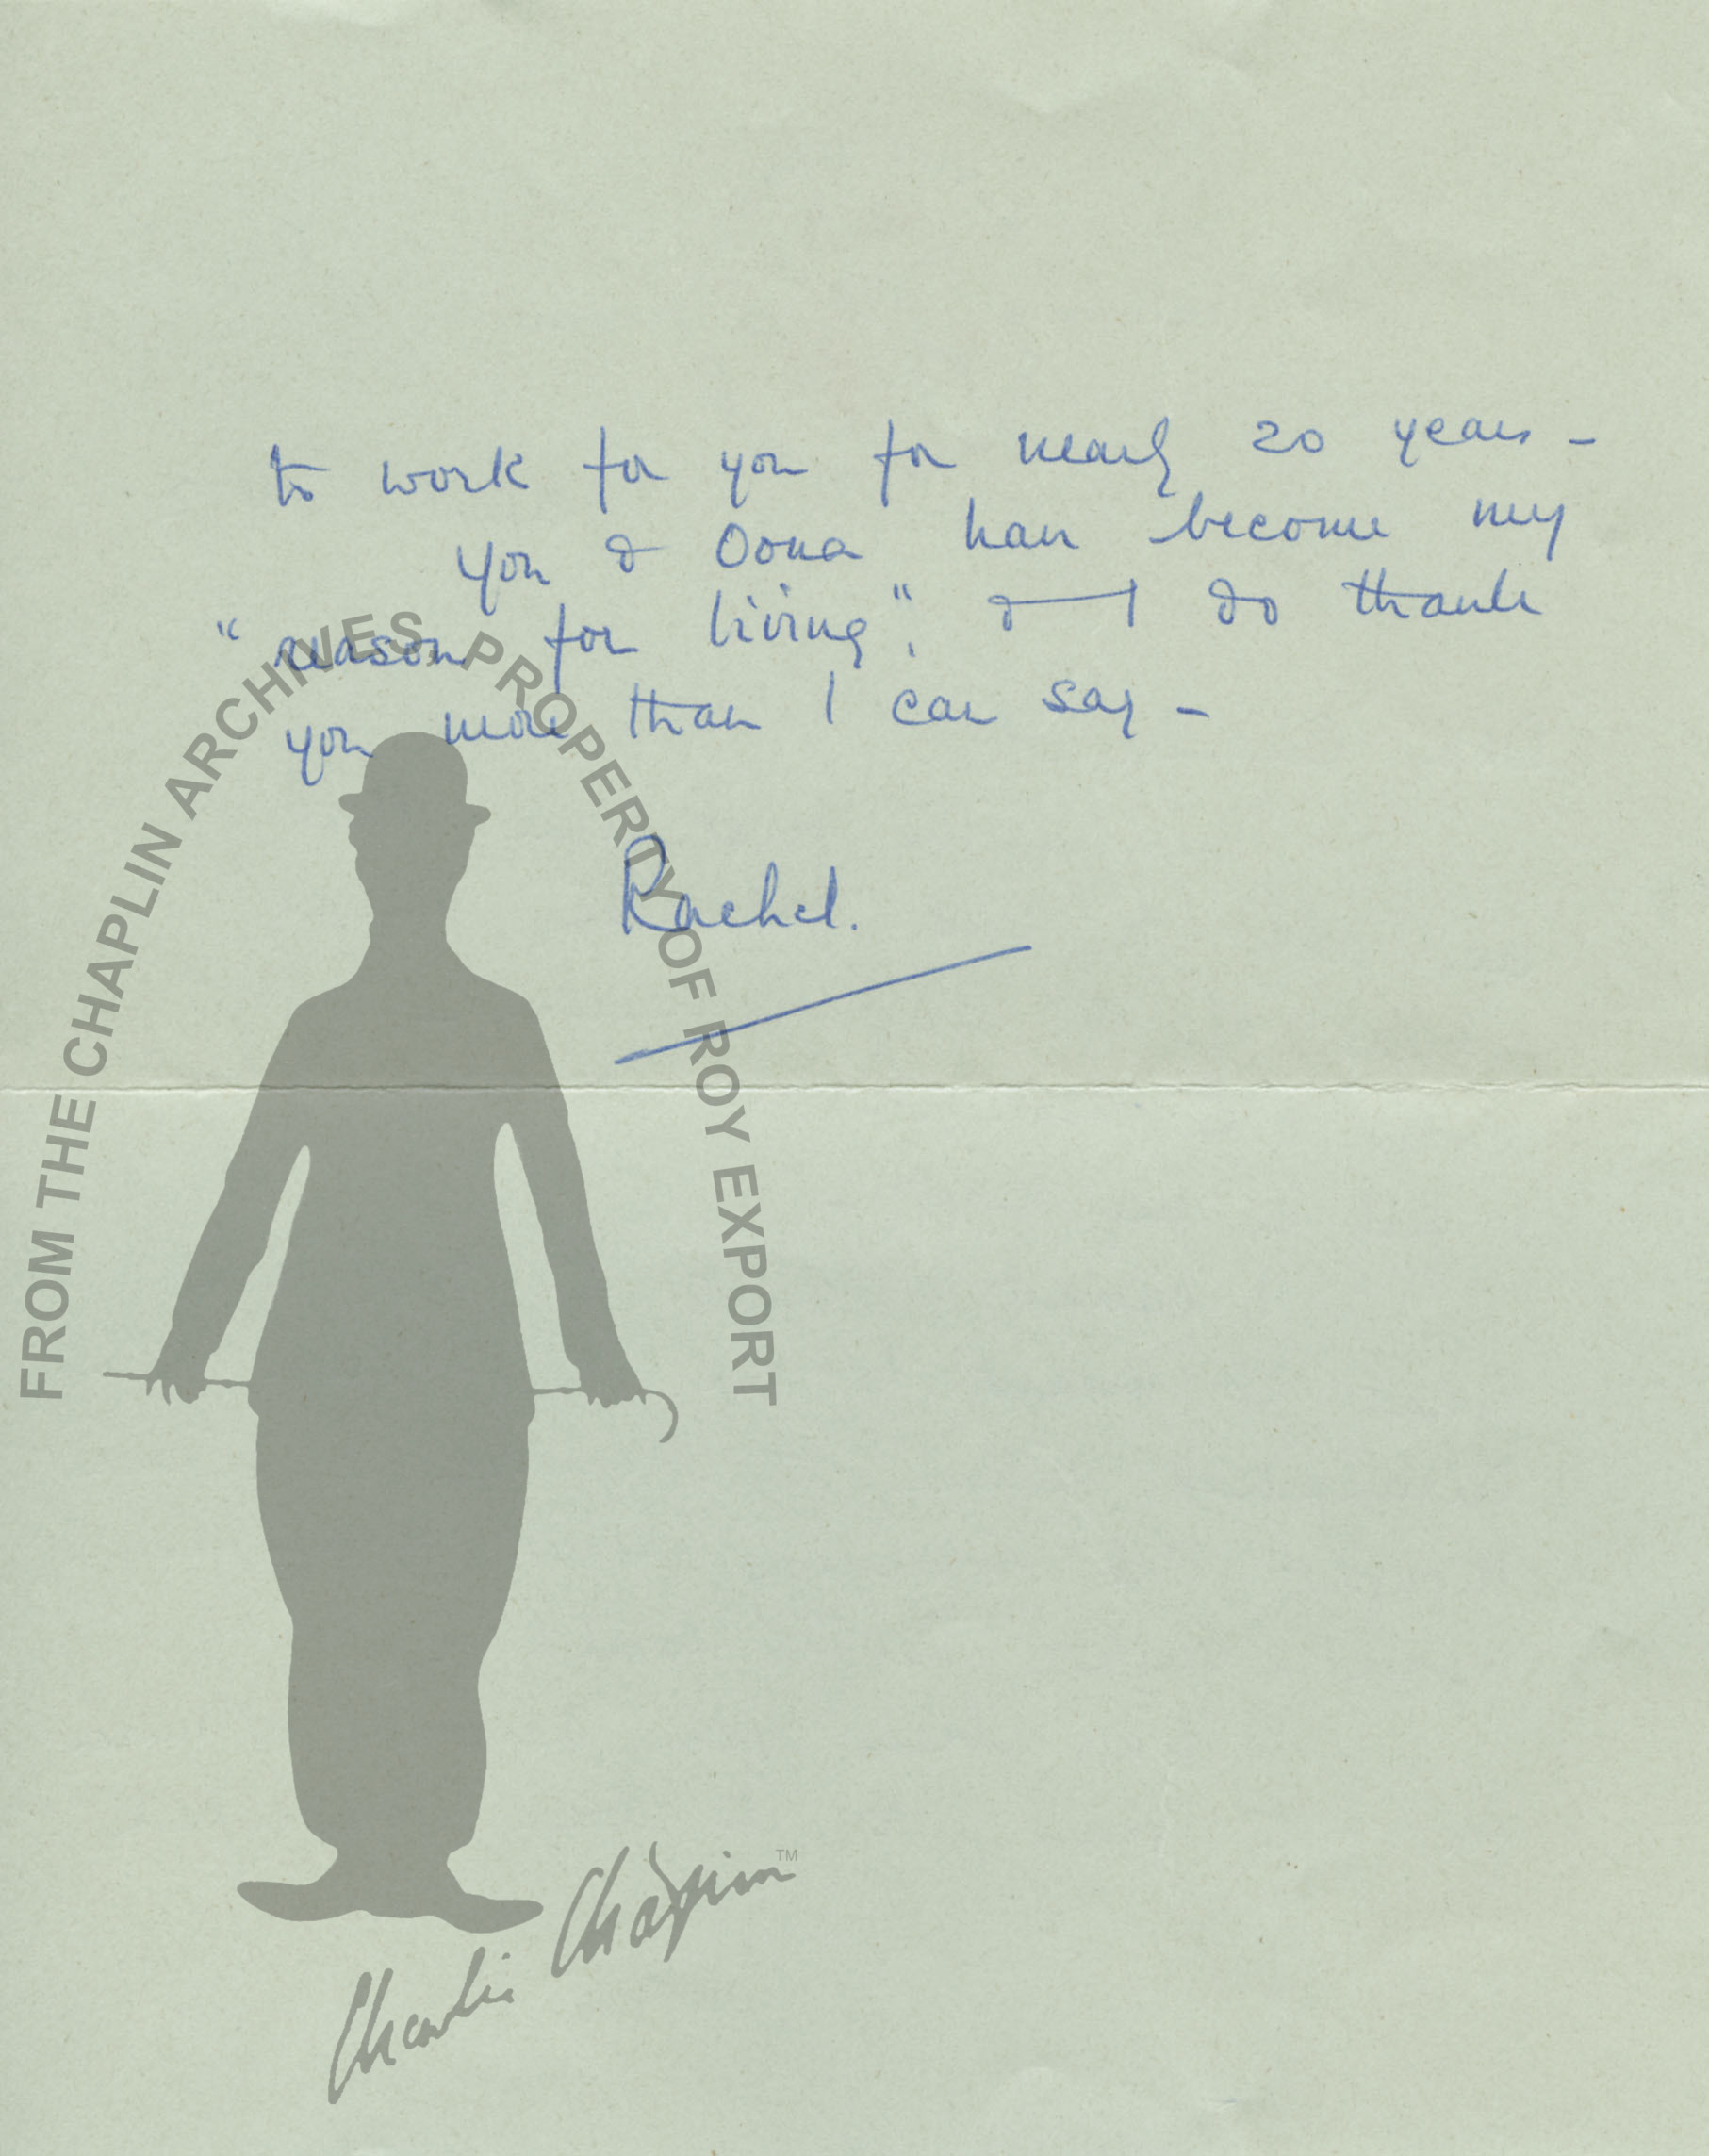 to work for you for nearly 20 years -
you & Oona have become my
"reason for living". & I do thank
you more than I can say -
Rachel.
FROM THE CHAPLIN ARCHIVES. PROPERTY OF ROY EXPORT
Charlie Chaplin™